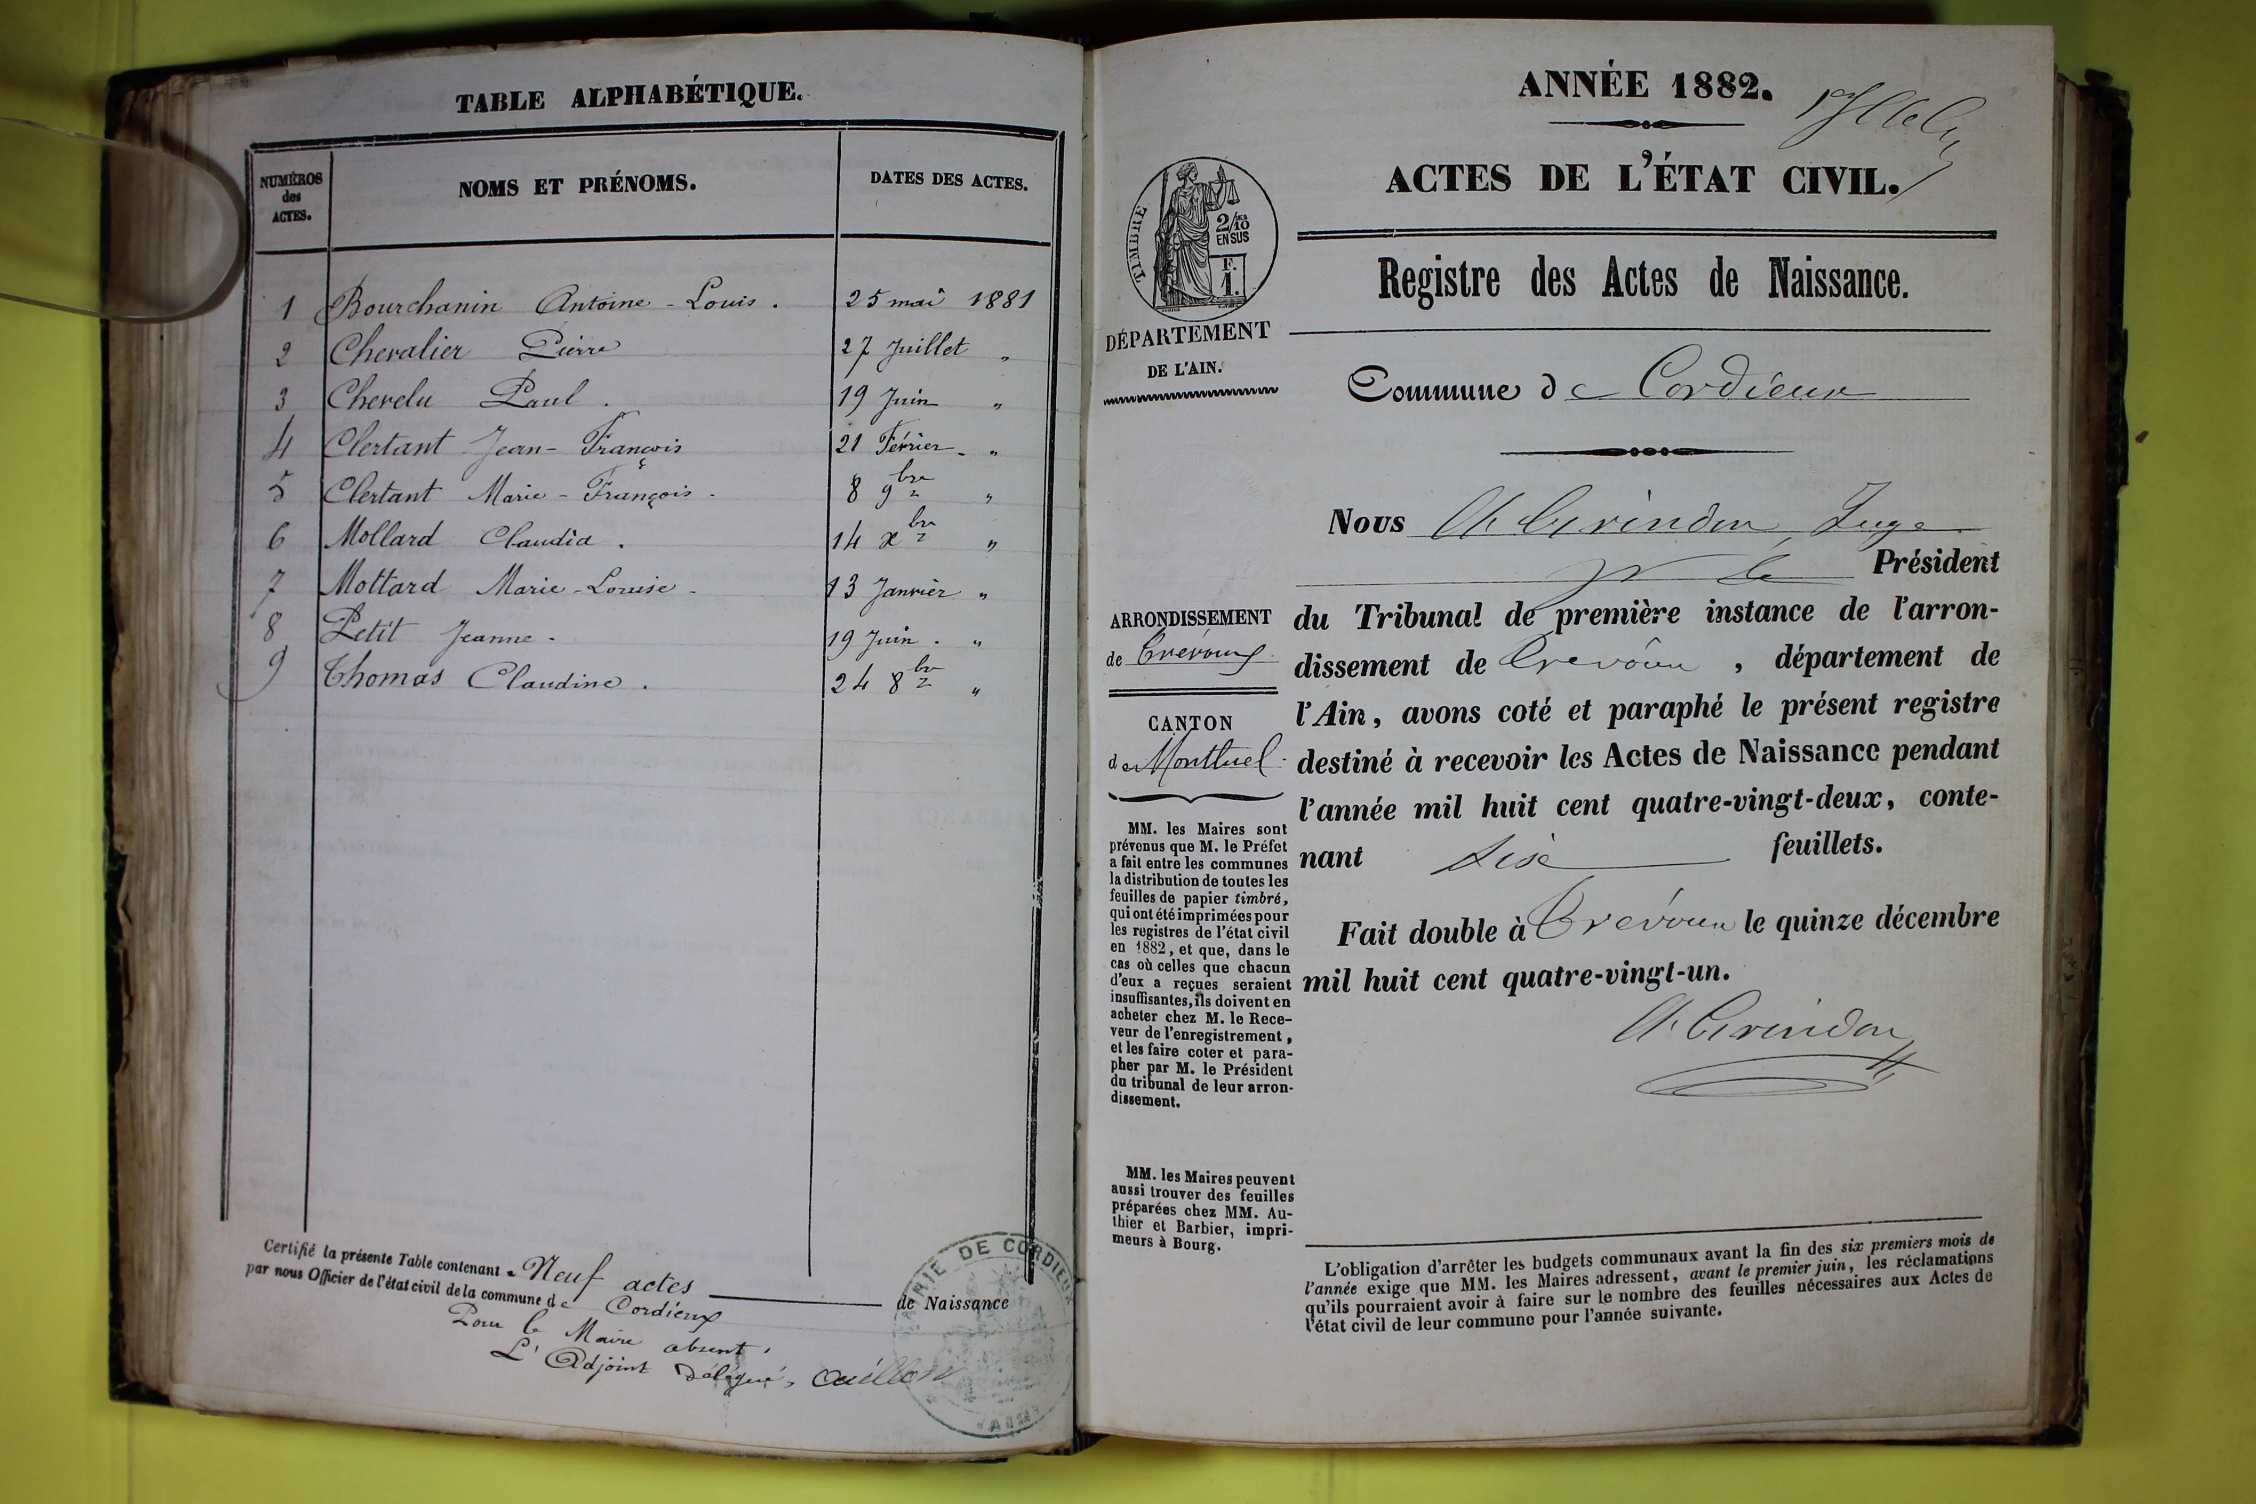 TABLE ALPHABÉTIQUE.
NUMÉROS des ACTES. NOMS ET PRÉNOMS. DATES DES ACTES.
1 Bourchanin Antoine - Louis. 25 mai 1881
2 Chevalier Pierre 27 Juillet "
3 Chevelu Paul. 19 Juin "
4 Clertant Jean - François 21 Février - "
5 Clertant Marie - François - 8 9bre "
6 Mollard Claudia. 14 xbre "
7 Mottard Marie - Louise - 13 Janvier "
8 Petit Jeanne - 19 Juin. "
9 Thomas Claudine. 24 8bre "
Certifié la présente Table contenant Neuf actes de Naissance
par nous Officier de l'état civil de la commune de Cordieux
Pour le Maire absent,
L'Adjoint délégué,
MAIRIE DE CORDIEUX
ANNÉE 1882.
ACTES DE L'ÉTAT CIVIL.
Registre des Actes de Naissance.
TIMBRE
2/10 EN SUS
F. 1.
DÉPARTEMENT
DE L'AIN.
Commune de Cordieux
Nous Juge
Président
du Tribunal de première instance de l'arron-
dissement de Trévoux, département de
l'Ain, avons coté et paraphé le présent registre
destiné à recevoir les Actes de Naissance pendant
l'année mil huit cent quatre-vingt-deux, conte-
nant feuillets.
Fait double à Trévoux le quinze décembre
mil huit cent quatre-vingt-un.
ARRONDISSEMENT
de Trévoux
CANTON
de Montluel
MM. les Maires sont
prévenus que M. le Préfet
a fait entre les communes
la distribution de toutes les
feuilles de papier timbré,
qui ont été imprimées pour
les registres de l'état civil
en 1882, et que, dans le
cas où celles que chacun
d'eux a reçues seraient
insuffisantes, ils doivent en
acheter chez M. le Rece-
veur de l'enregistrement,
et les faire coter et para-
pher par M. le Président
du tribunal de leur arron-
dissement.
MM. les Maires peuvent
aussi trouver des feuilles
préparées chez MM. Au-
thier et Barbier, impri-
meurs à Bourg.
L'obligation d'arrêter les budgets communaux avant la fin des six premiers mois de
l'année exige que MM. les Maires adressent, avant le premier juin, les réclamations
qu'ils pourraient avoir à faire sur le nombre des feuilles nécessaires aux Actes de
l'état civil de leur commune pour l'année suivante.